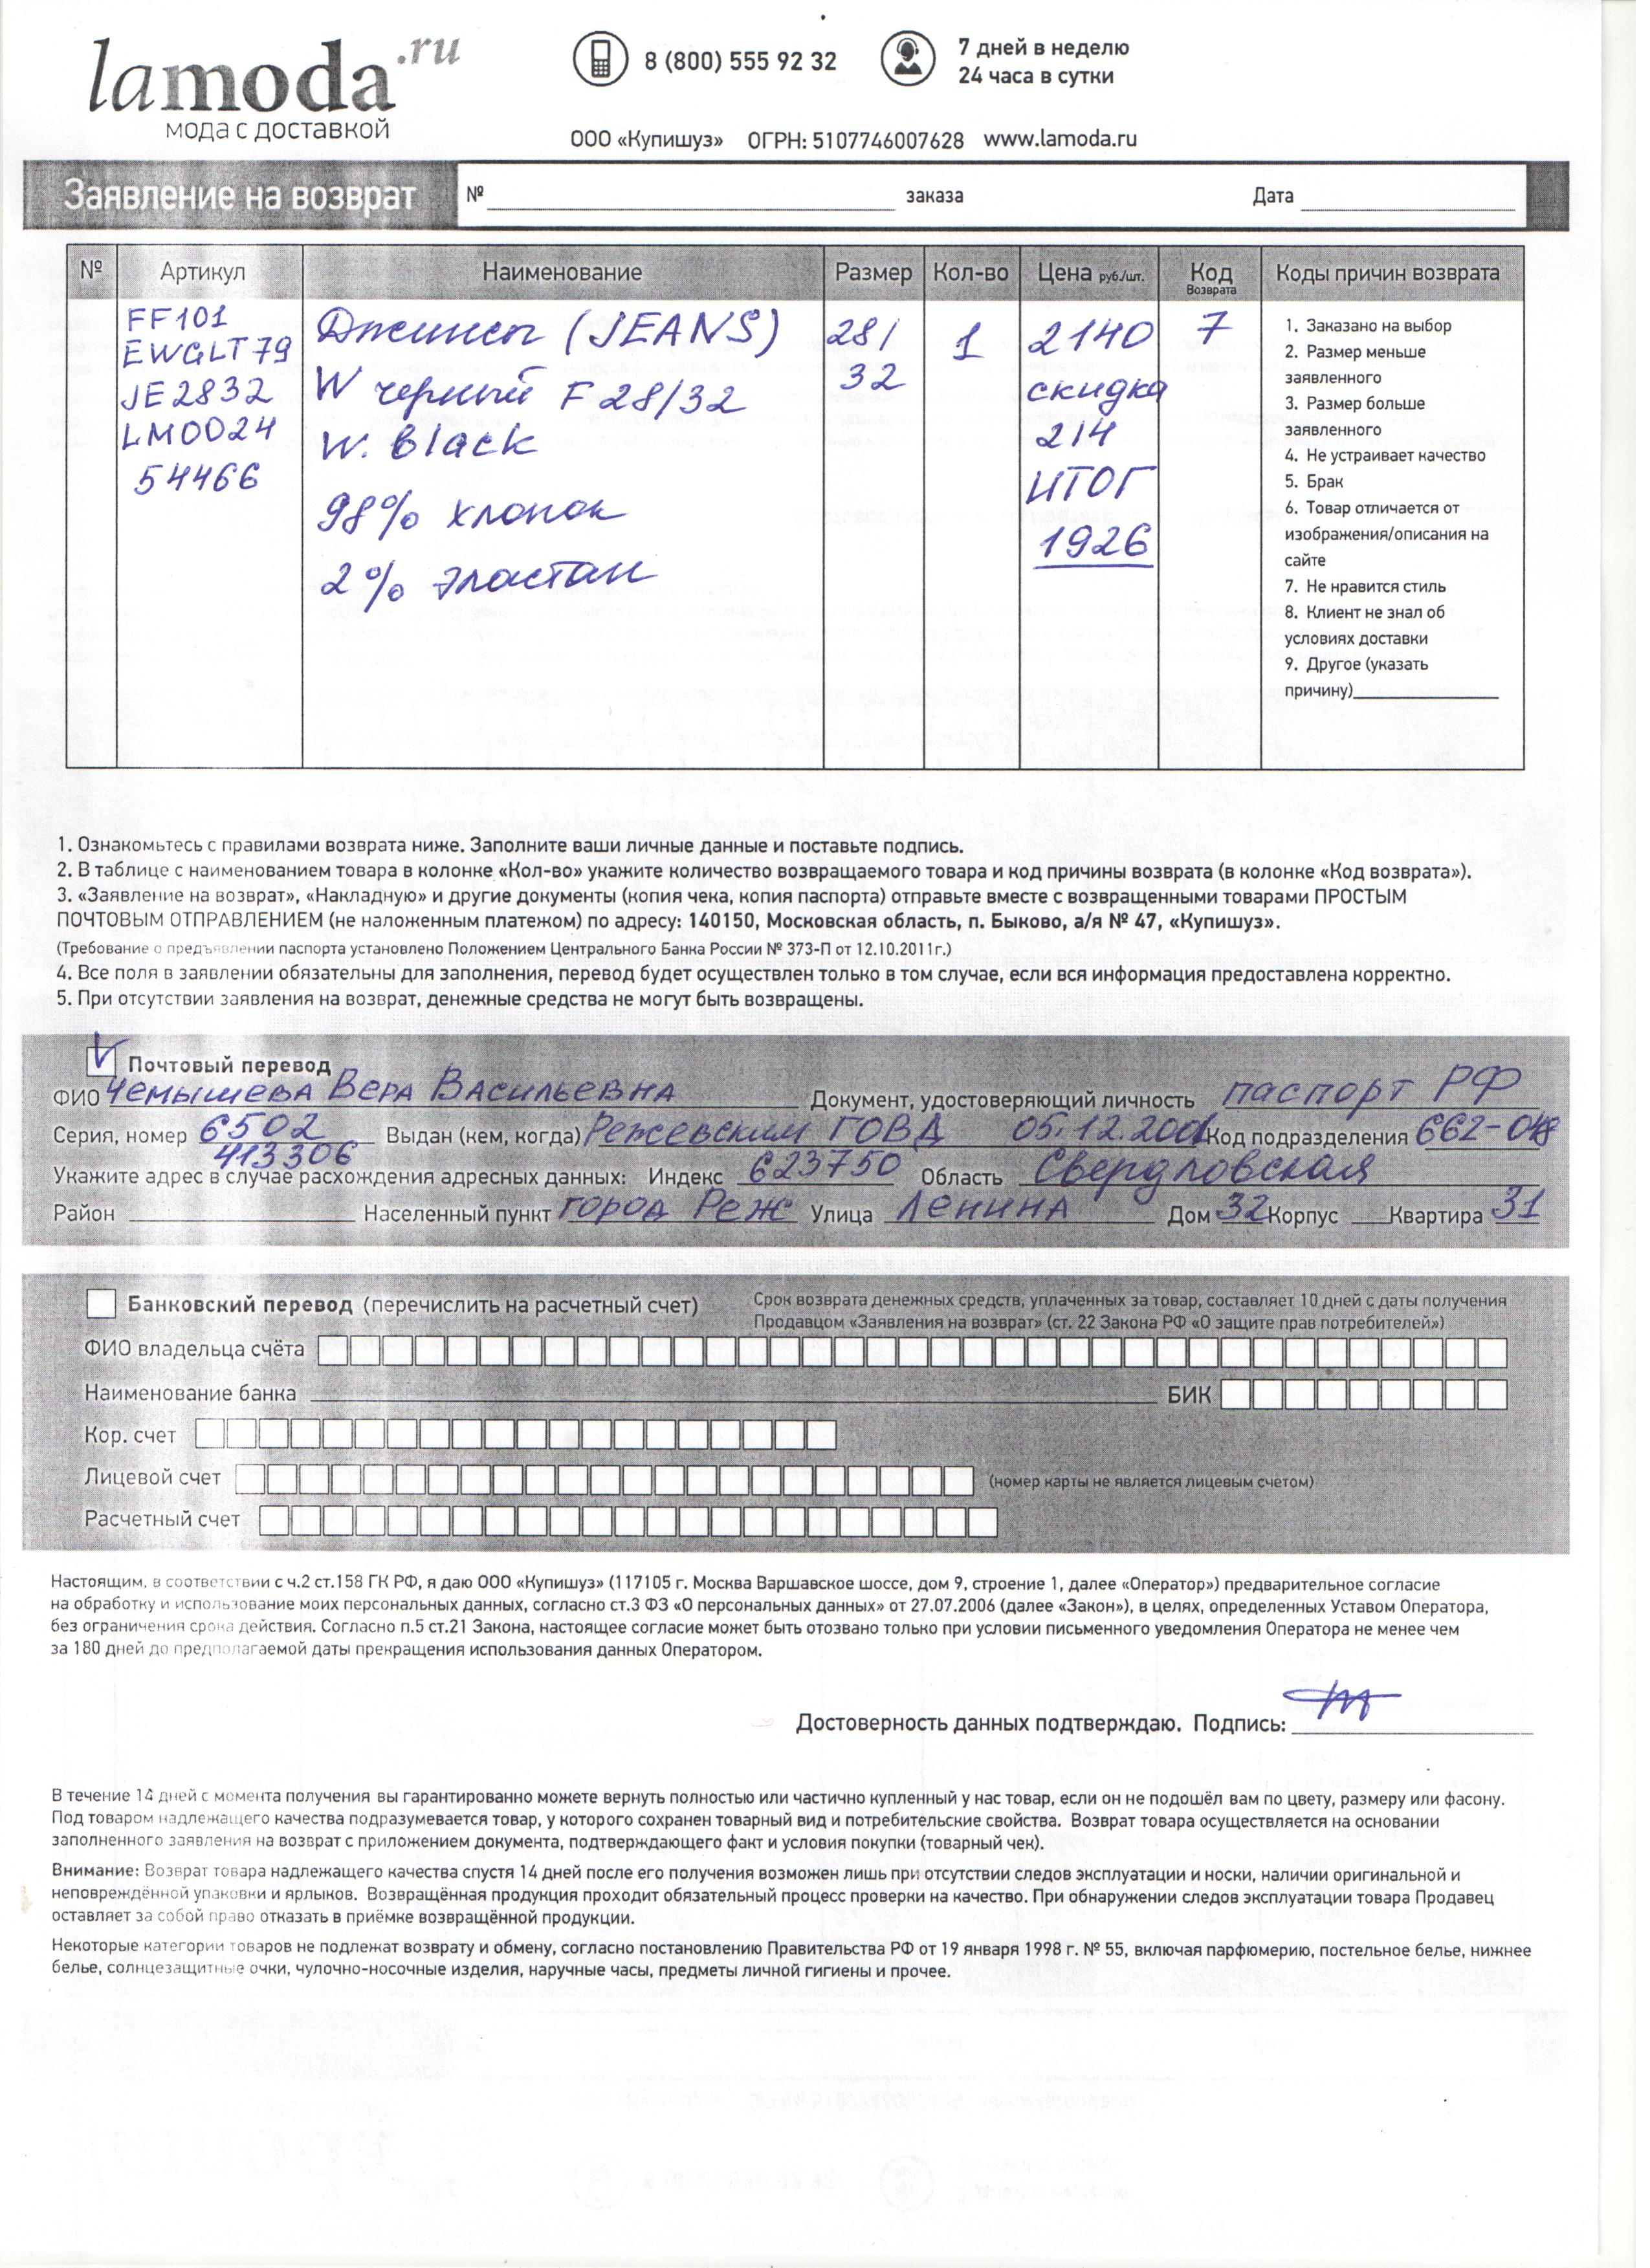 lamoda.ru
мода с доставкой
8 (800) 555 92 32
7 дней в неделю
24 часа в сутки
ООО «Купишуз» ОГРН: 5107746007628 www.lamoda.ru
Заявление на возврат № заказа Дата
№ Артикул Наименование Размер Кол-во Цена руб./шт. Код Возврата Коды причин возврата
FF101
EWGLT79
JE2832
LM0024
54466
Джинсы (JEANS)
W черный F 28/32
W. black
98% хлопок
2% эластан
28/
32
1
2140
скидка
214
ИТОГ
1926
7
1. Заказано на выбор
2. Размер меньше
заявленного
3. Размер больше
заявленного
4. Не устраивает качество
5. Брак
6. Товар отличается от
изображения/описания на
сайте
7. Не нравится стиль
8. Клиент не знал об
условиях доставки
9. Другое (указать
причину)
1. Ознакомьтесь с правилами возврата ниже. Заполните ваши личные данные и поставьте подпись.
2. В таблице с наименованием товара в колонке «Кол-во» укажите количество возвращаемого товара и код причины возврата (в колонке «Код возврата»).
3. «Заявление на возврат», «Накладную» и другие документы (копия чека, копия паспорта) отправьте вместе с возвращенными товарами ПРОСТЫМ
ПОЧТОВЫМ ОТПРАВЛЕНИЕМ (не наложенным платежом) по адресу: 140150, Московская область, п. Быково, а/я № 47, «Купишуз».
(Требование о предъявлении паспорта установлено Положением Центрального Банка России № 373-П от 12.10.2011г.)
4. Все поля в заявлении обязательны для заполнения, перевод будет осуществлен только в том случае, если вся информация предоставлена корректно.
5. При отсутствии заявления на возврат, денежные средства не могут быть возвращены.
Почтовый перевод
ФИО Чемышева Вера Васильевна Документ, удостоверяющий личность паспорт РФ
Серия, номер 6502 413306 Выдан (кем, когда) Режевским ГОВД 05.12.2001 Код подразделения 662-048
Укажите адрес в случае расхождения адресных данных: Индекс 623750 Область Свердловская
Район Населенный пункт город Реж Улица Ленина Дом 32 Корпус Квартира 31
Банковский перевод (перечислить на расчетный счет)
Срок возврата денежных средств, уплаченных за товар, составляет 10 дней с даты получения
Продавцом «Заявления на возврат» (ст. 22 Закона РФ «О защите прав потребителей»)
ФИО владельца счёта
Наименование банка БИК
Кор. счет
Лицевой счет (номер карты не является лицевым счетом)
Расчетный счет
Настоящим, в соответствии с ч.2 ст.158 ГК РФ, я даю ООО «Купишуз» (117105 г. Москва Варшавское шоссе, дом 9, строение 1, далее «Оператор») предварительное согласие
на обработку и использование моих персональных данных, согласно ст.3 ФЗ «О персональных данных» от 27.07.2006 (далее «Закон»), в целях, определенных Уставом Оператора,
без ограничения срока действия. Согласно п.5 ст.21 Закона, настоящее согласие может быть отозвано только при условии письменного уведомления Оператора не менее чем
за 180 дней до предполагаемой даты прекращения использования данных Оператором.
Достоверность данных подтверждаю. Подпись:
В течение 14 дней с момента получения вы гарантированно можете вернуть полностью или частично купленный у нас товар, если он не подошёл вам по цвету, размеру или фасону.
Под товаром надлежащего качества подразумевается товар, у которого сохранен товарный вид и потребительские свойства. Возврат товара осуществляется на основании
заполненного заявления на возврат с приложением документа, подтверждающего факт и условия покупки (товарный чек).
Внимание: Возврат товара надлежащего качества спустя 14 дней после его получения возможен лишь при отсутствии следов эксплуатации и носки, наличии оригинальной и
неповреждённой упаковки и ярлыков. Возвращённая продукция проходит обязательный процесс проверки на качество. При обнаружении следов эксплуатации товара Продавец
оставляет за собой право отказать в приёмке возвращённой продукции.
Некоторые категории товаров не подлежат возврату и обмену, согласно постановлению Правительства РФ от 19 января 1998 г. № 55, включая парфюмерию, постельное белье, нижнее
белье, солнцезащитные очки, чулочно-носочные изделия, наручные часы, предметы личной гигиены и прочее.